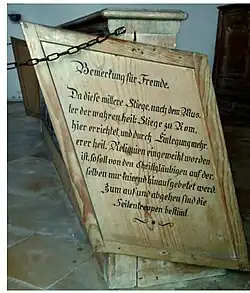 Bemerkung für Fremde.
Da diese mittere Stiege, nach dem Mus,
ter der wahren heil: Stiege zu Rom,
hier errichtet, und durch Einlegung mehr,
erer heil. Reliquien eingeweiht worden
ist, so soll von den Christgläubigen auf der,
selben nur knieend hinauf gebetet werd.
Zum auf und abgehen sind die
Seitentreppen bestimt.